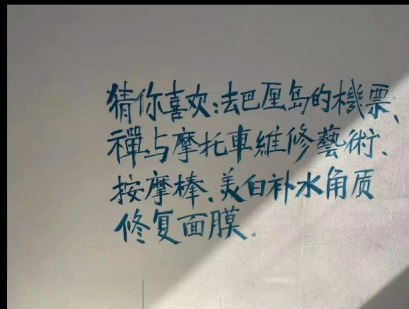 猜你喜欢:去巴厘岛的機票、
禪与摩托車維修藝術、
按摩棒、美白补水角质
修复面膜。